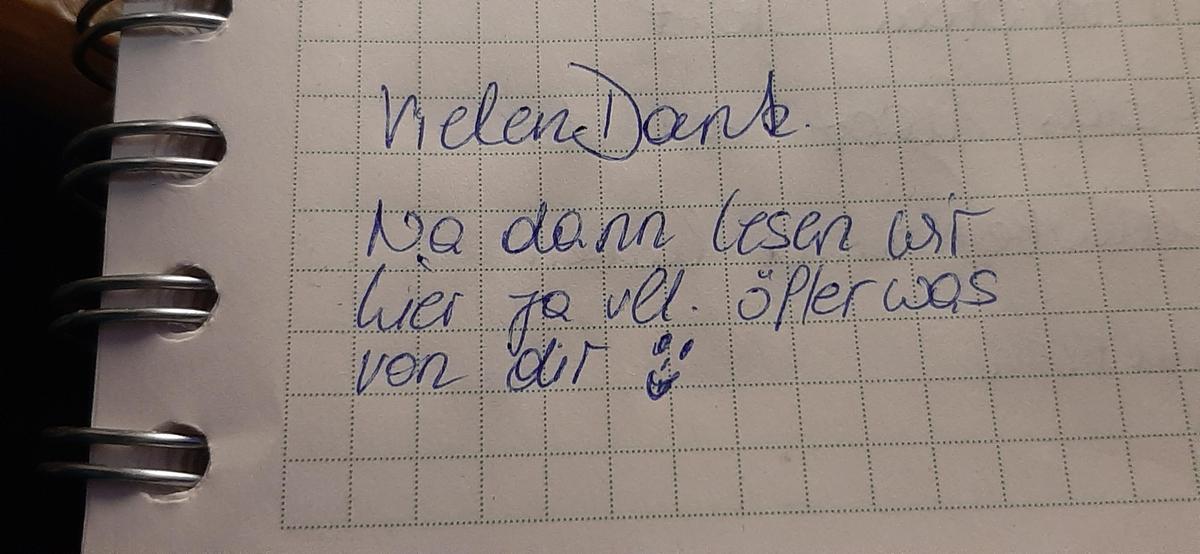 Vielen Dank.
Na dann lesen wir
hier ja vll. öfter was
von dir